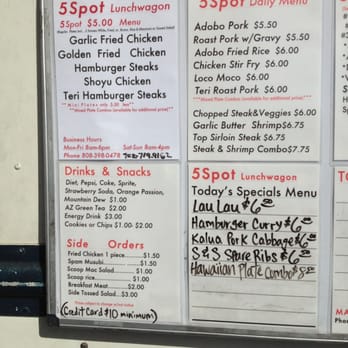 5Spot Lunchwagon
5Spot $5.00 Menu
Garlic Fried Chicken
Golden Fried Chicken
Hamburger Steaks
Shoyu Chicken
Teri Hamburger Steaks
**Mini Plates only $.50 less**
***Mixed Plate Combos (available for additional price)***
Business Hours
Mon-Fri 8am-8pm Sat-Sun 8am-4pm
Phone 808-398-0478
Drinks & Snacks
Diet, Pepsi, Coke, Sprite,
Strawberry Soda, Orange Passion,
Mountain Dew $1.00
AZ Green Tea $2.00
Energy Drink $3.00
Cookies or Chips $1.00- $2.00
Side Orders
Fried Chicken 1 piece.......$1.50
Spam Musubi................$1.50
Scoop Mac Salad.......$1.00
Scoop rice................$1.00
Breakfast Meat........$2.00
Side Tossed Salad...$3.00
(Credit Card $10 minimum)
5Spot Daily Menu
Adobo Pork $5.50
Roast Pork w/Gravy $5.50
Adobo Fried Rice $6.00
Chicken Stir Fry $6.00
Loco Moco $6.00
Teri Roast Pork $6.00
***Mixed Plate Combos (available for additional price)***
Chopped Steak&Veggies $6.00
Garlic Butter Shrimp$6.75
Top Sirloin Steak $6.75
Steak & Shrimp Combo$7.75
5Spot Lunchwagon
Today's Specials Menu
Lau Lau $6.
Hamburger Curry $6.
Kalua Pork Cabbage $6.
S&S Spare Ribs $6.
Hawaiian Plate Combo $8.